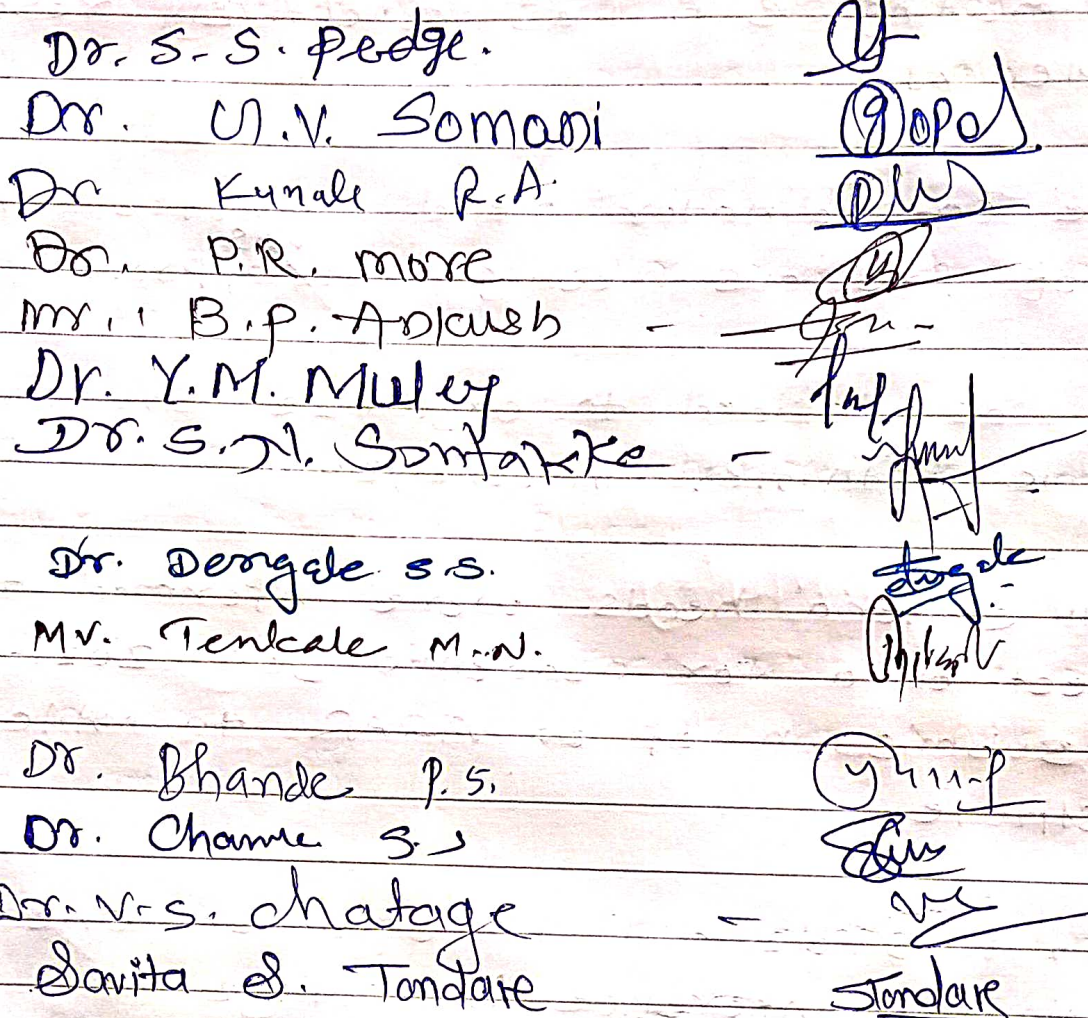 Dr. S. S. Pedge.
Dr. V. Somani Gopal
Dr Kunale R.A.
Dr. P.R. more
Mr. B.P. Ankush
Dr. Y.M. Muley
Dr. S.N. Sontakke
Dr. Dengale s.s. dengale
Mr. Tenkale M.N.
Dr. Bhande P.S.
Dr. Chame S.S
Dr. V.S. chatage
Savita S. Tondare STondare